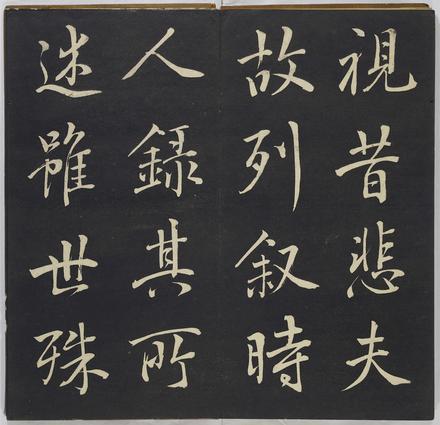 視昔悲夫
故列叙時
人録其所
述雖世殊